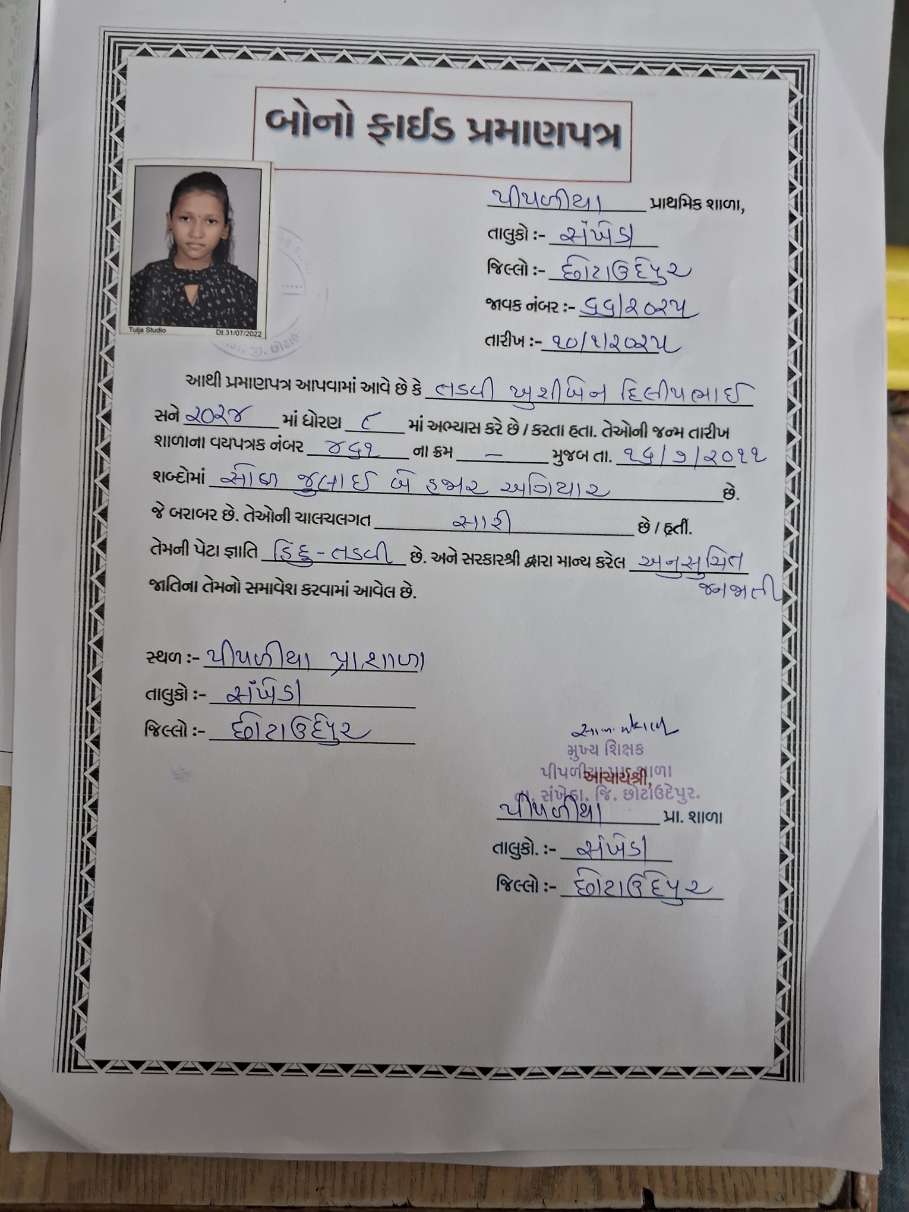 બોનો ફાઈડ પ્રમાણપત્ર
Tulja Studio Dt.31/07/2022
પીપળીયા પ્રાથમિક શાળા,
તાલુકો :- સંખેડા
જિલ્લો :- છોટાઉદેપુર
જાવક નંબર :- ૬૬/૨૦૨૫
તારીખ :- ૧૦/૧/૨૦૨૫
આથી પ્રમાણપત્ર આપવામાં આવે છે કે તડવી ખુશીબેન દિલીપભાઈ
સને ૨૦૨૪ માં ધોરણ ૮ માં અભ્યાસ કરે છે / કરતા હતા. તેઓની જન્મ તારીખ
શાળાના વયપત્રક નંબર ૪૬૧ ના ક્રમ — મુજબ તા. ૧૬/૭/૨૦૧૧
શબ્દોમાં સોળ જુલાઈ બે હજાર અગિયાર છે.
જે બરાબર છે. તેઓની ચાલચલગત સારી છે / હતી.
તેમની પેટા જ્ઞાતિ હિંદુ - તડવી છે. અને સરકારશ્રી દ્વારા માન્ય કરેલ અનુસુચિત
જનજાતી
જાતિના તેમનો સમાવેશ કરવામાં આવેલ છે.
સ્થળ :- પીપળીયા પ્રા.શાળા
તાલુકો :- સંખેડા
જિલ્લો :- છોટાઉદેપુર
મુખ્ય શિક્ષક
પીપળીયા પ્રા. શાળા
આચાર્યશ્રી,
તા. સંખેડા. જિ. છોટાઉદેપુર.
પીપળીયા પ્રા. શાળા
તાલુકો. :- સંખેડા
જિલ્લો :- છોટાઉદેપુર